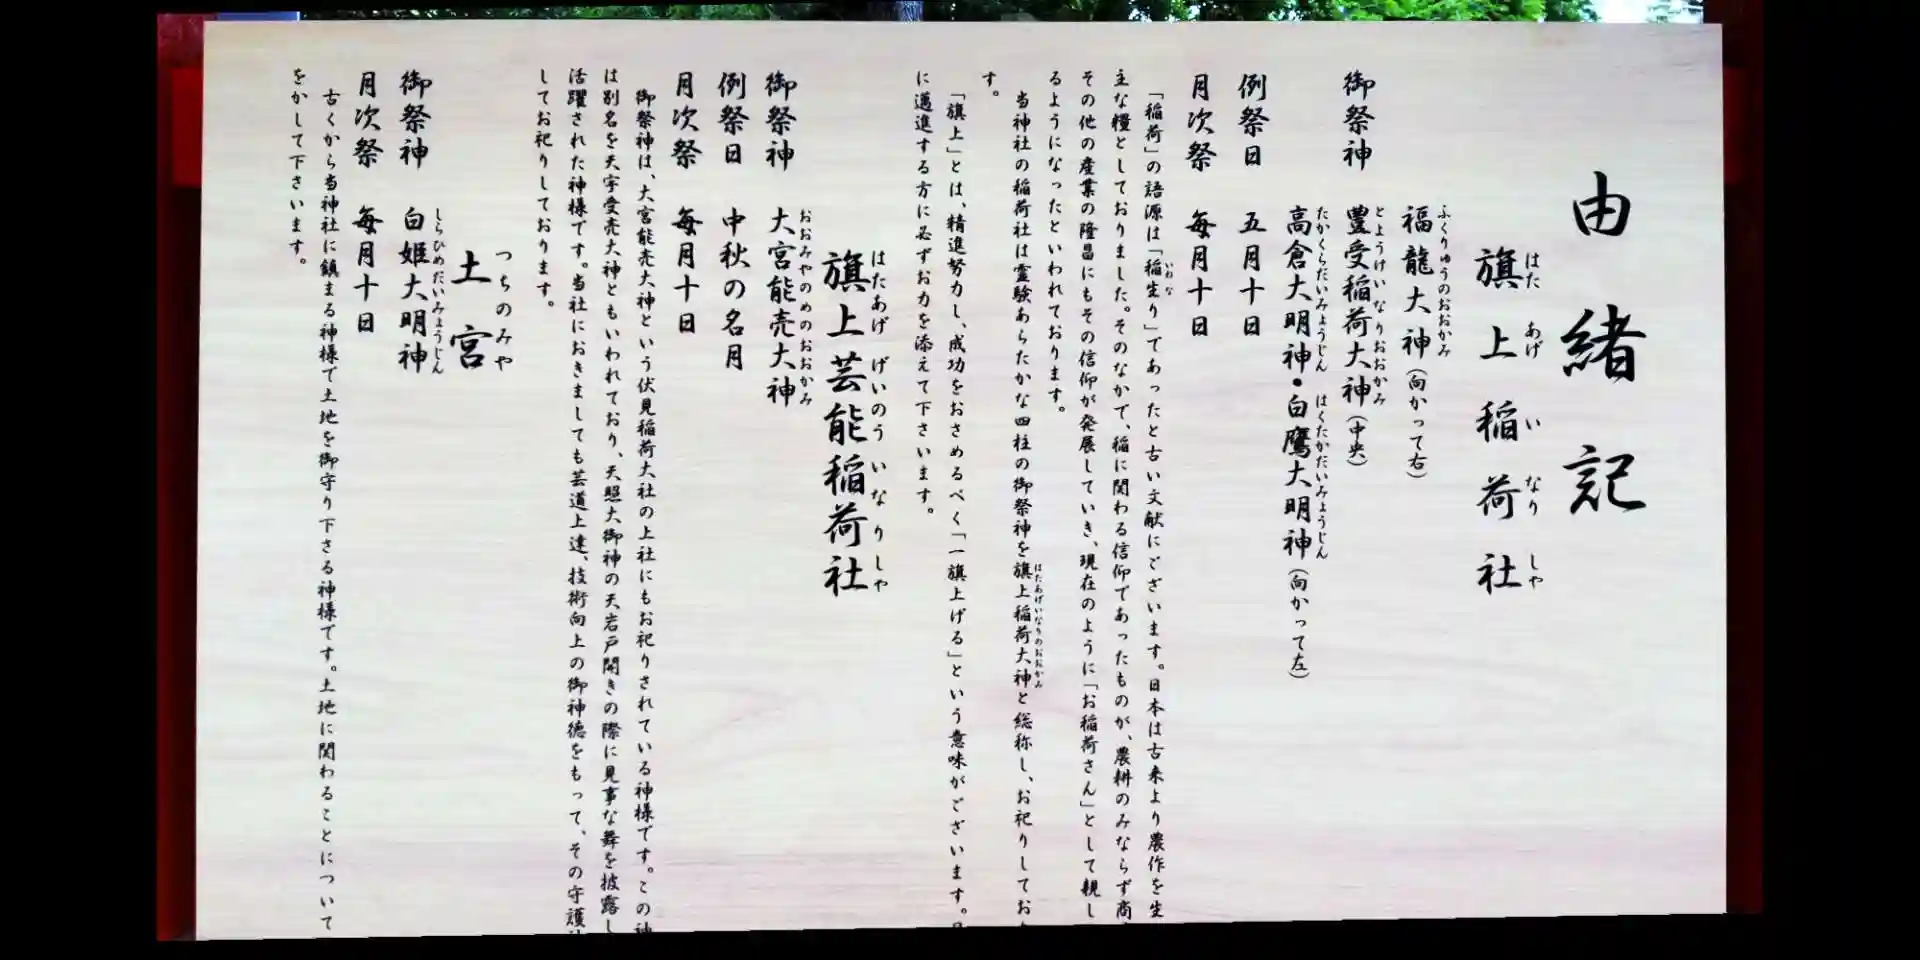 由緒記
旗上稲荷社
はた あげ い なり しや
福龍大神(向かって右)
ふくりゅうのおおかみ
御祭神 豊受稲荷大神(中央)
とようけいなりおおかみ
高倉大明神・白鷹大明神(向かって左)
たかくらだいみょうじん はくたかだいみょうじん
例祭日 五月十日
月次祭 毎月十日
「稲荷」の語源は「稲生り」であったと古い文献にございます。日本は古来より農作を生
いねな
主な糧としておりました。そのなかで、稲に関わる信仰であったものが、農耕のみならず商
その他の産業の隆昌にもその信仰が発展していき、現在のように「お稲荷さん」として親し
るようになったといわれております。
当神社の稲荷社は霊験あらたかな四柱の御祭神を旗上稲荷大神と総称し、お祀りしてお
はたあげいなりのおおかみ
す。
「旗上」とは、精進努力し、成功をおさめるべく「一旗上げる」という意味がございます。
に邁進する方に必ずお力を添えて下さいます。
旗上芸能稲荷社
はたあげ げいのう いなりしや
御祭神 大宮能売大神
おおみやのめのおおかみ
例祭日 中秋の名月
月次祭 毎月十日
御祭神は、大宮能売大神という伏見稲荷大社の上社にもお祀りされている神様です。この神
は別名を天宇受売大神ともいわれており、天照大御神の天岩戸開きの際に見事な舞を披露し
活躍された神様です。当社におきましても芸道上達、技術向上の御神徳をもって、その守護
してお祀りしております。
土宮
つちのみや
御祭神 白姫大明神
しらひめだいみょうじん
月次祭 毎月十日
古くから当神社に鎮まる神様で土地を御守り下さる神様です。土地に関わることについて
をかして下さいます。